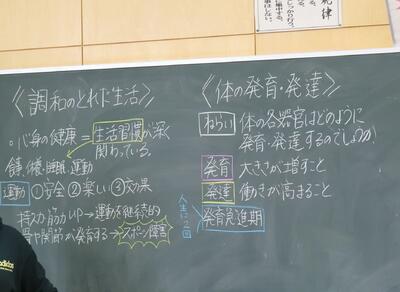 《調和のとれた生活》
○心身の健康＝生活習慣が深く
関わっている。
食事、休養、睡眠、運動
運動 ①安全 ②楽しい ③効果
持久力筋力UP→運動を継続的
骨や関節が発育する→スポーツ障害
《体の発育・発達》
ねらい 体の各器官はどのように
発育・発達するのでしょうか
発育 大きさが増すこと
発達 働きが高まること
人生に2回
発育急進期
規律